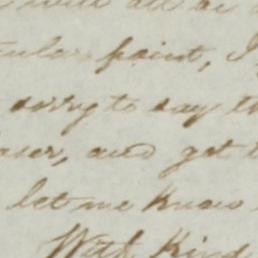 will all be
ticular point, I
sorry to say th
aser, and get t
let me know
With Kind